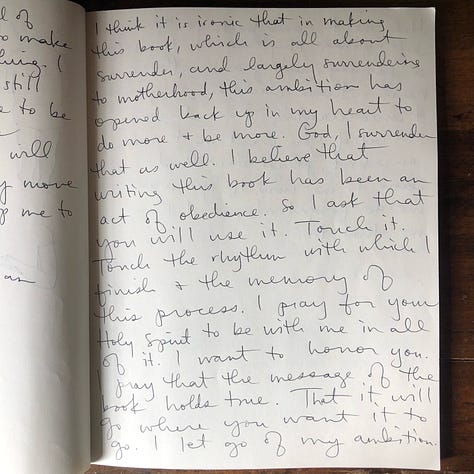 l of
o make
hing. I
still
e to be
will
y move
p me to
as
I think it is ironic that in making
this book, which is all about
surrender, and largely surrendering
to motherhood, this ambition has
opened back up in my heart to
do more + be more. God, I surrender
that as well. I believe that
writing this book has been an
act of obedience. So I ask that
you will use it. Touch it.
Touch the rhythm with which I
finish + the memory of
this process. I pray for your
Holy Spirit to be with me in all
of it. I want to honor you.
I pray that the message of the
book holds true. That it will
go where you want it to
go. I let go of my ambition.